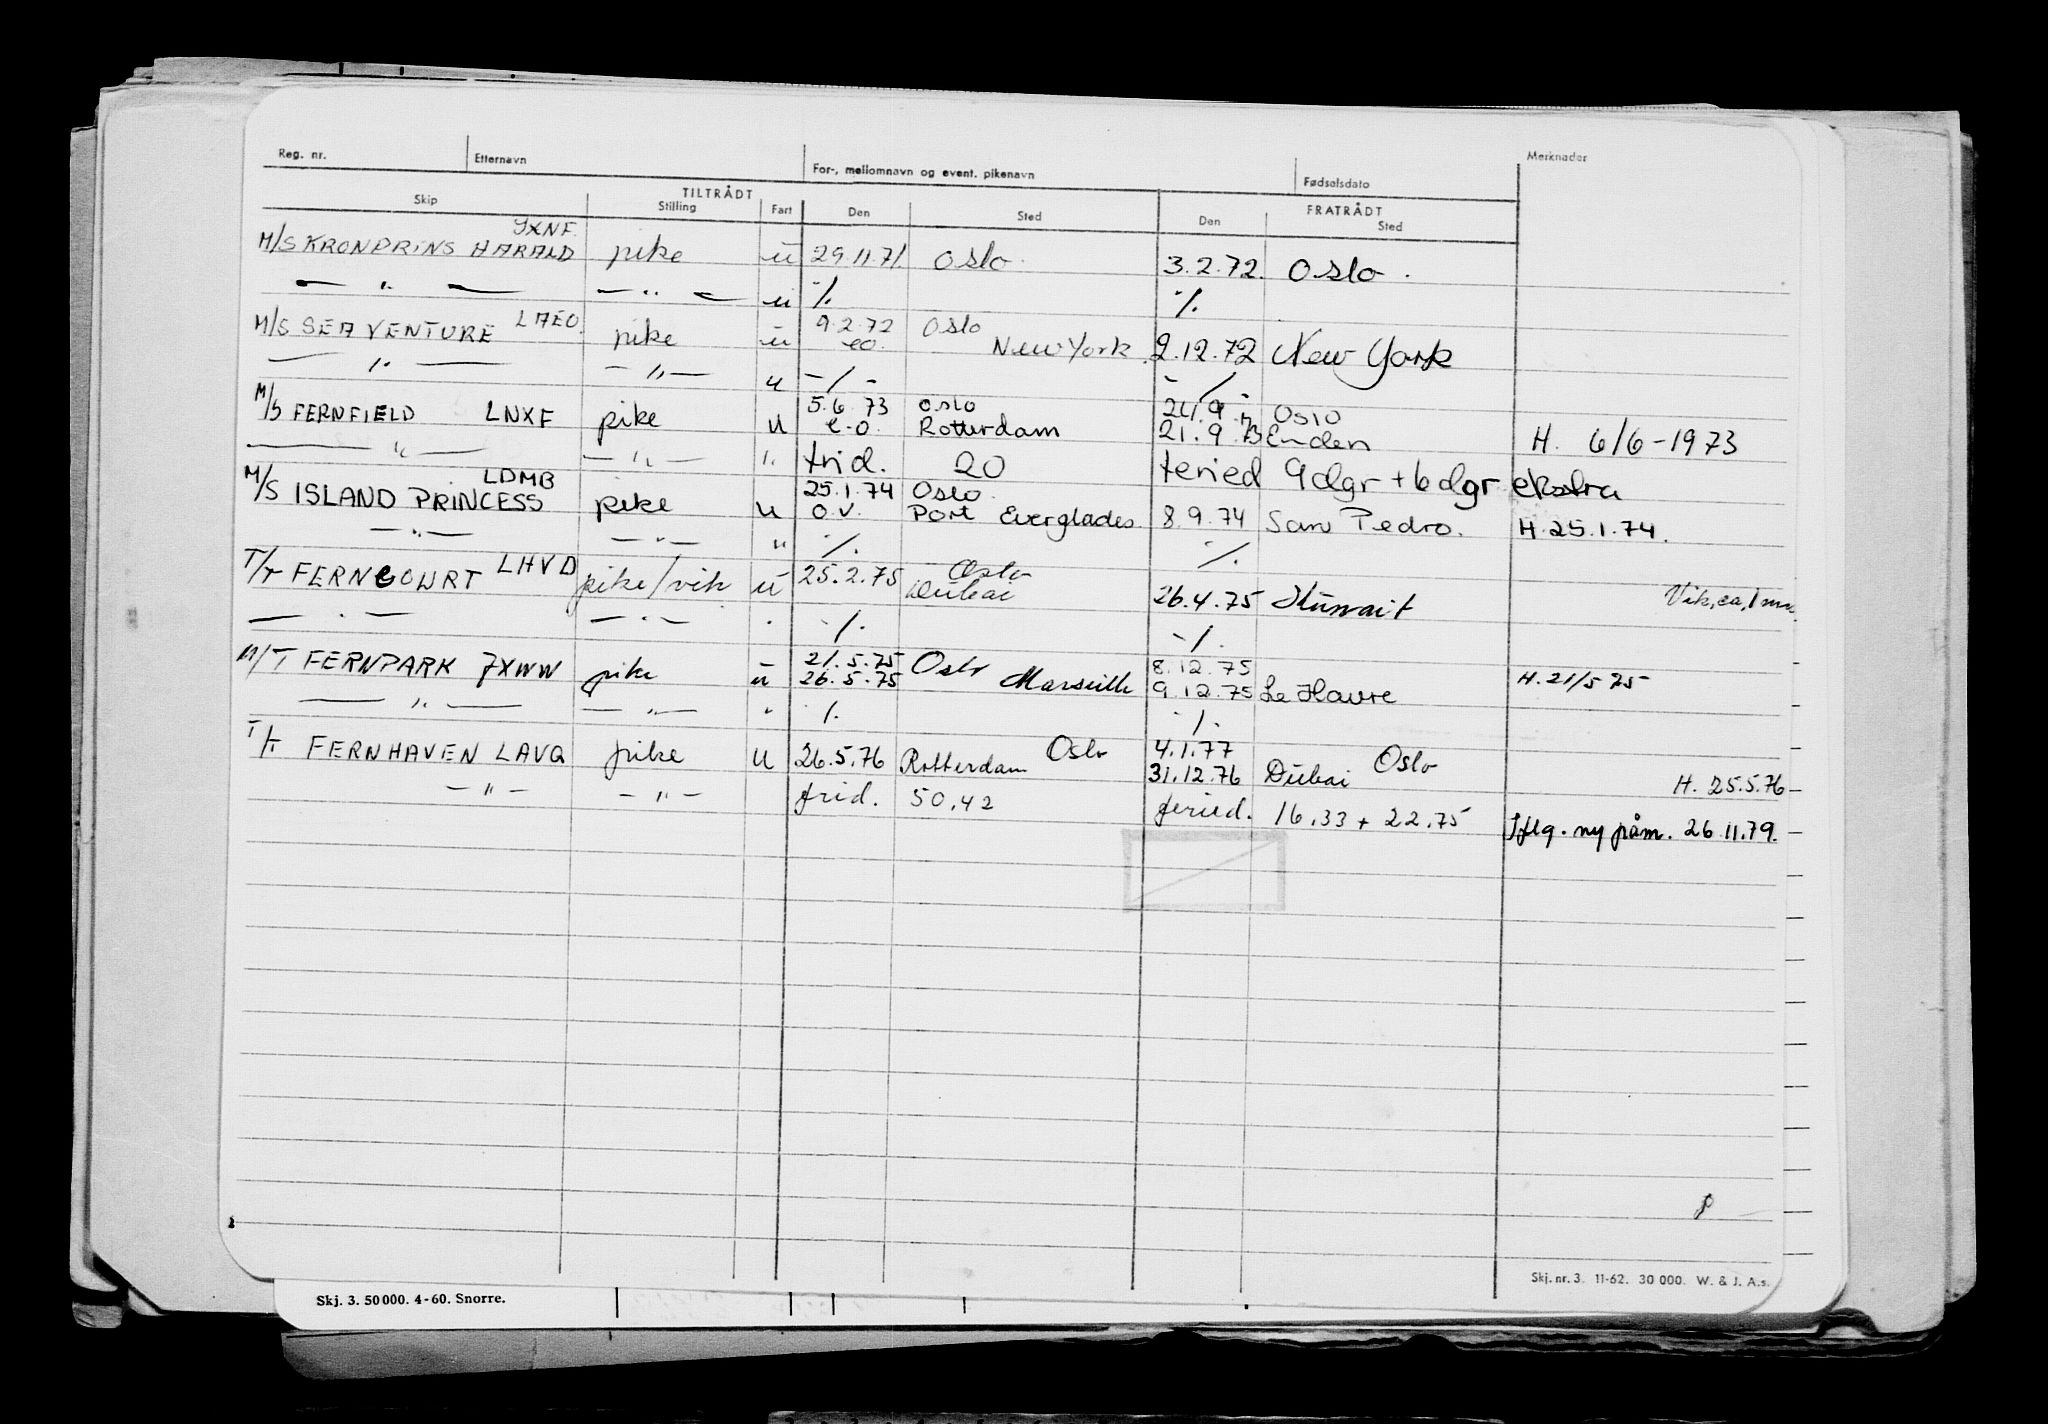 Reg. nr. Etternavn For-, mellomnavn og event. pikenavn Fødselsdato Merknader
TILTRÅDT FRATRÅDT
Skip Stilling Fart Den Sted Den Sted
JXNF
M/S KRONPRINS HARALD pike u 29.11.71. Oslo. 3.2.72. Oslo.
— " — — " — u ·/. ·/.
M/S SEA VENTURE LAEO. pike u 9.2.72 Oslo
eo. New York 2.12.72 New York
— " — — " — u -/- -/-
M/S FERNFIELD LNXF pike u 5.6.73 Oslo 24.9.73 Oslo
e.o. Rotterdam 21.9.73 Emden H. 6/6-1973
— " — — " — " frid. 20 feried 9 dgr + 6 dgr ekstra
LDMB
M/S ISLAND PRINCESS pike u 25.1.74 Oslo.
o.v. Port Everglades 8.9.74 San Pedro. H.25.1.74.
— " — — " — " ·/. ·/.
T/T FERNCOURT LHVD pike/vik u 25.2.75 Oslo
Dubai 26.4.75 Kuwait Vik, ca, 1 mn
— " — — " — " -/. -/.
M/T FERNPARK JXWW pike u 21.5.75 Oslo 8.12.75
26.5.75 Marseille 9.12.75 Le Havre H.21/5 75
— " — — " — " ·/. -/-
T/T FERNHAVEN LAVQ pike u 26.5.76 Rotterdam Oslo 4.1.77 Oslo
31.12.76 Dubai H. 25.5.76
— " — — " — frid. 50,42 feried. 16,33 + 22.75 Sflg. ny påm. 26.11.79.
Skj. nr. 3. 11-62. 30 000. W. & J. A.s.
Skj. 3. 50000. 4-60. Snorre.